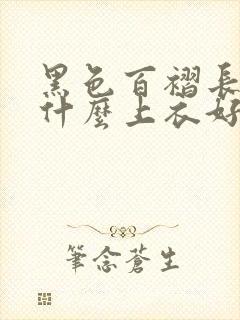 黑色百褶長
什麼上衣好
筆念蒼生